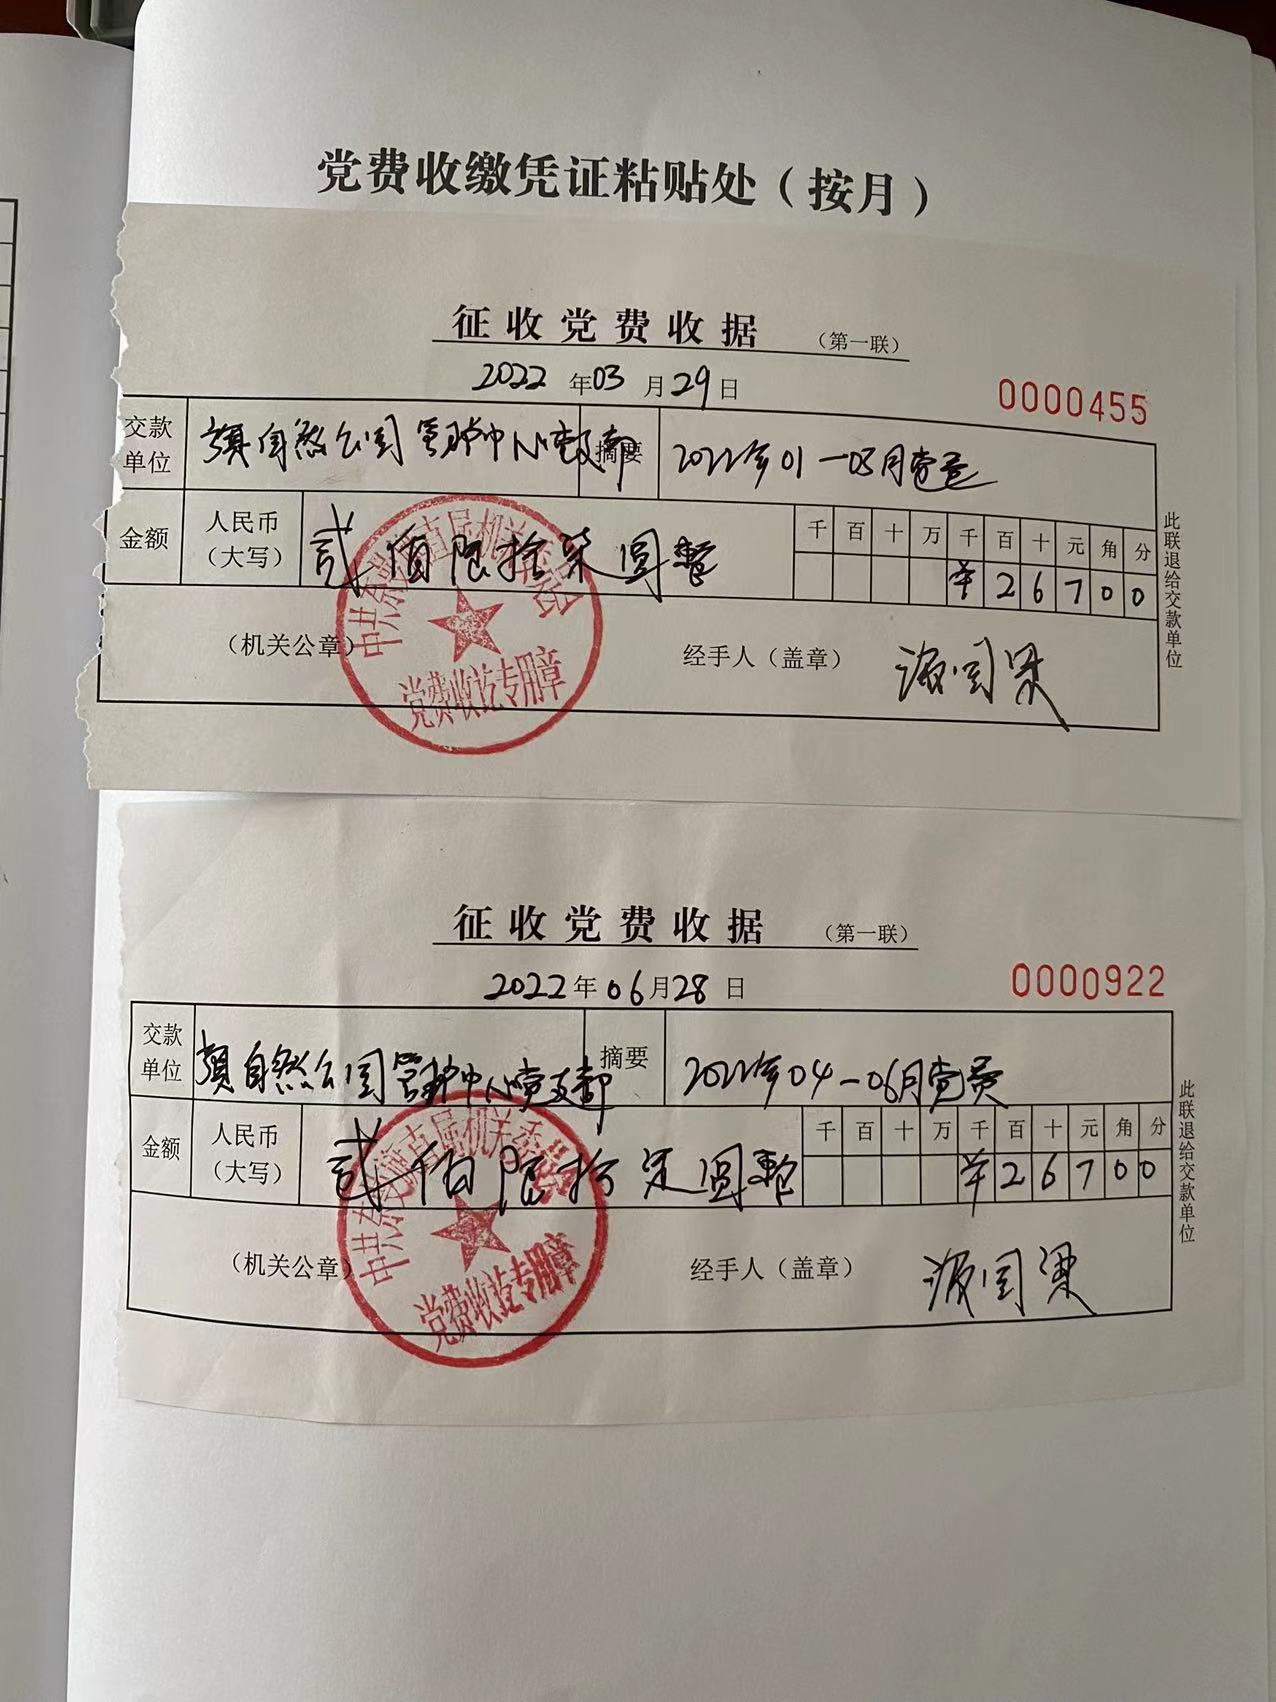 党费收缴凭证粘贴处（按月）
征收党费收据 （第一联）
2022 年 03 月 29 日
0000455
交款单位 旗自然公园管护中心党支部 摘要 2022年01—03月党费
金额 人民币（大写） 贰佰陆拾柒圆整
千 百 十 万 千 百 十 元 角 分
¥ 2 6 7 0 0
（机关公章） 经手人（盖章）
党费收讫专用章
此联退给交款单位
征收党费收据 （第一联）
2022 年 06 月 28 日
0000922
交款单位 旗自然公园管护中心党支部 摘要 2022年04—06月党费
金额 人民币（大写） 贰佰陆拾柒圆整
千 百 十 万 千 百 十 元 角 分
¥ 2 6 7 0 0
（机关公章） 经手人（盖章）
党费收讫专用章
此联退给交款单位